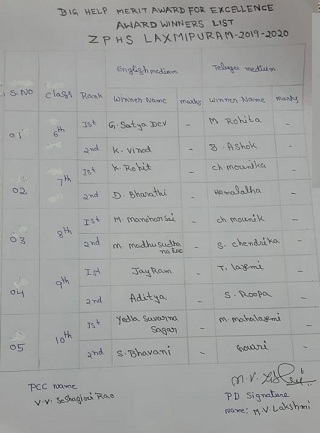 BIG HELP MERIT AWARD FOR EXCELLENCE
AWARD WINNERS LIST
ZPHS LAXMIPURAM-2019-2020
English medium Telugu medium
S.NO Class Rank Winner Name marks Winner Name marks
01 6th Ist G. Satya Dev - M. Rohita -
2nd K. Vinod - B. Ashok -
02 7th Ist K. Rohit - ch. mounika -
2nd D. Bharathi - Hemalatha -
03 8th Ist M. manohar - ch mounik -
2nd m. madhu sudha - S. chendrika -
04 9th Ist JayRam T. laxmi -
2nd Aditya - S. Roopa -
05 10th Ist Yedla Suvarna Sagar - m. mahalaxmi -
2nd S. Bhavani - Gouri -
PCC name
V.V. Seshagiri Rao
PD Signature
name: M.V Lakshmi